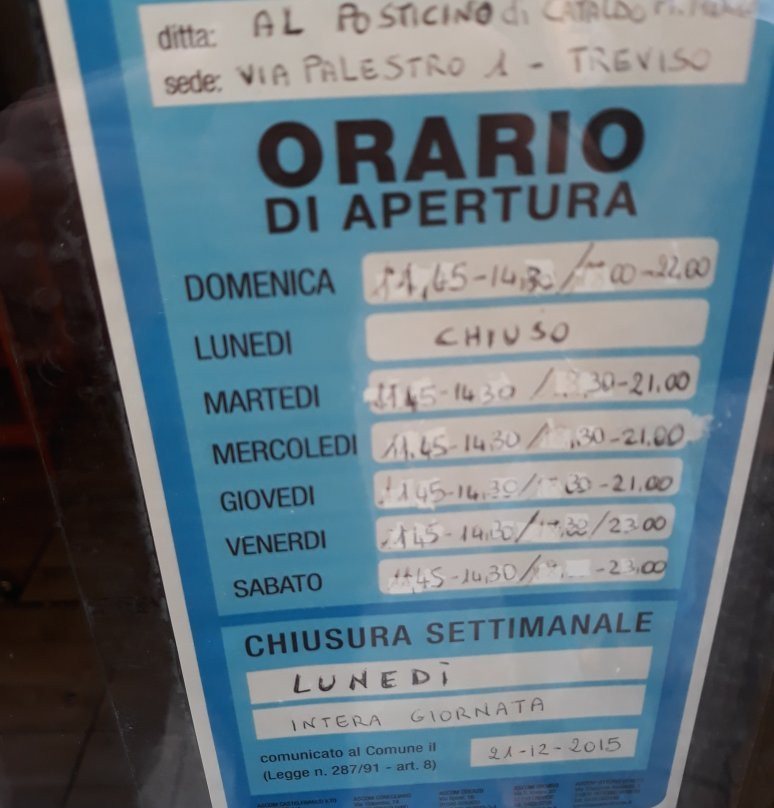 ditta: AL POSTICINO di CATALDO
sede: VIA PALESTRO 1 - TREVISO
ORARIO
DI APERTURA
DOMENICA 11,45-14,30/ 00-22.00
LUNEDI CHIUSO
MARTEDI 11.45-14.30 / ,30-21.00
MERCOLEDI 11.45-14.30/ ,30-21.00
GIOVEDI 1145-14.30/ 30-21.00
VENERDI 1145-14.30/17.30/23.00
SABATO 11,45-14,30/ -23.00
CHIUSURA SETTIMANALE
LUNEDÌ
INTERA GIORNATA
comunicato al Comune il 21-12-2015
(Legge n. 287/91 - art. 8)